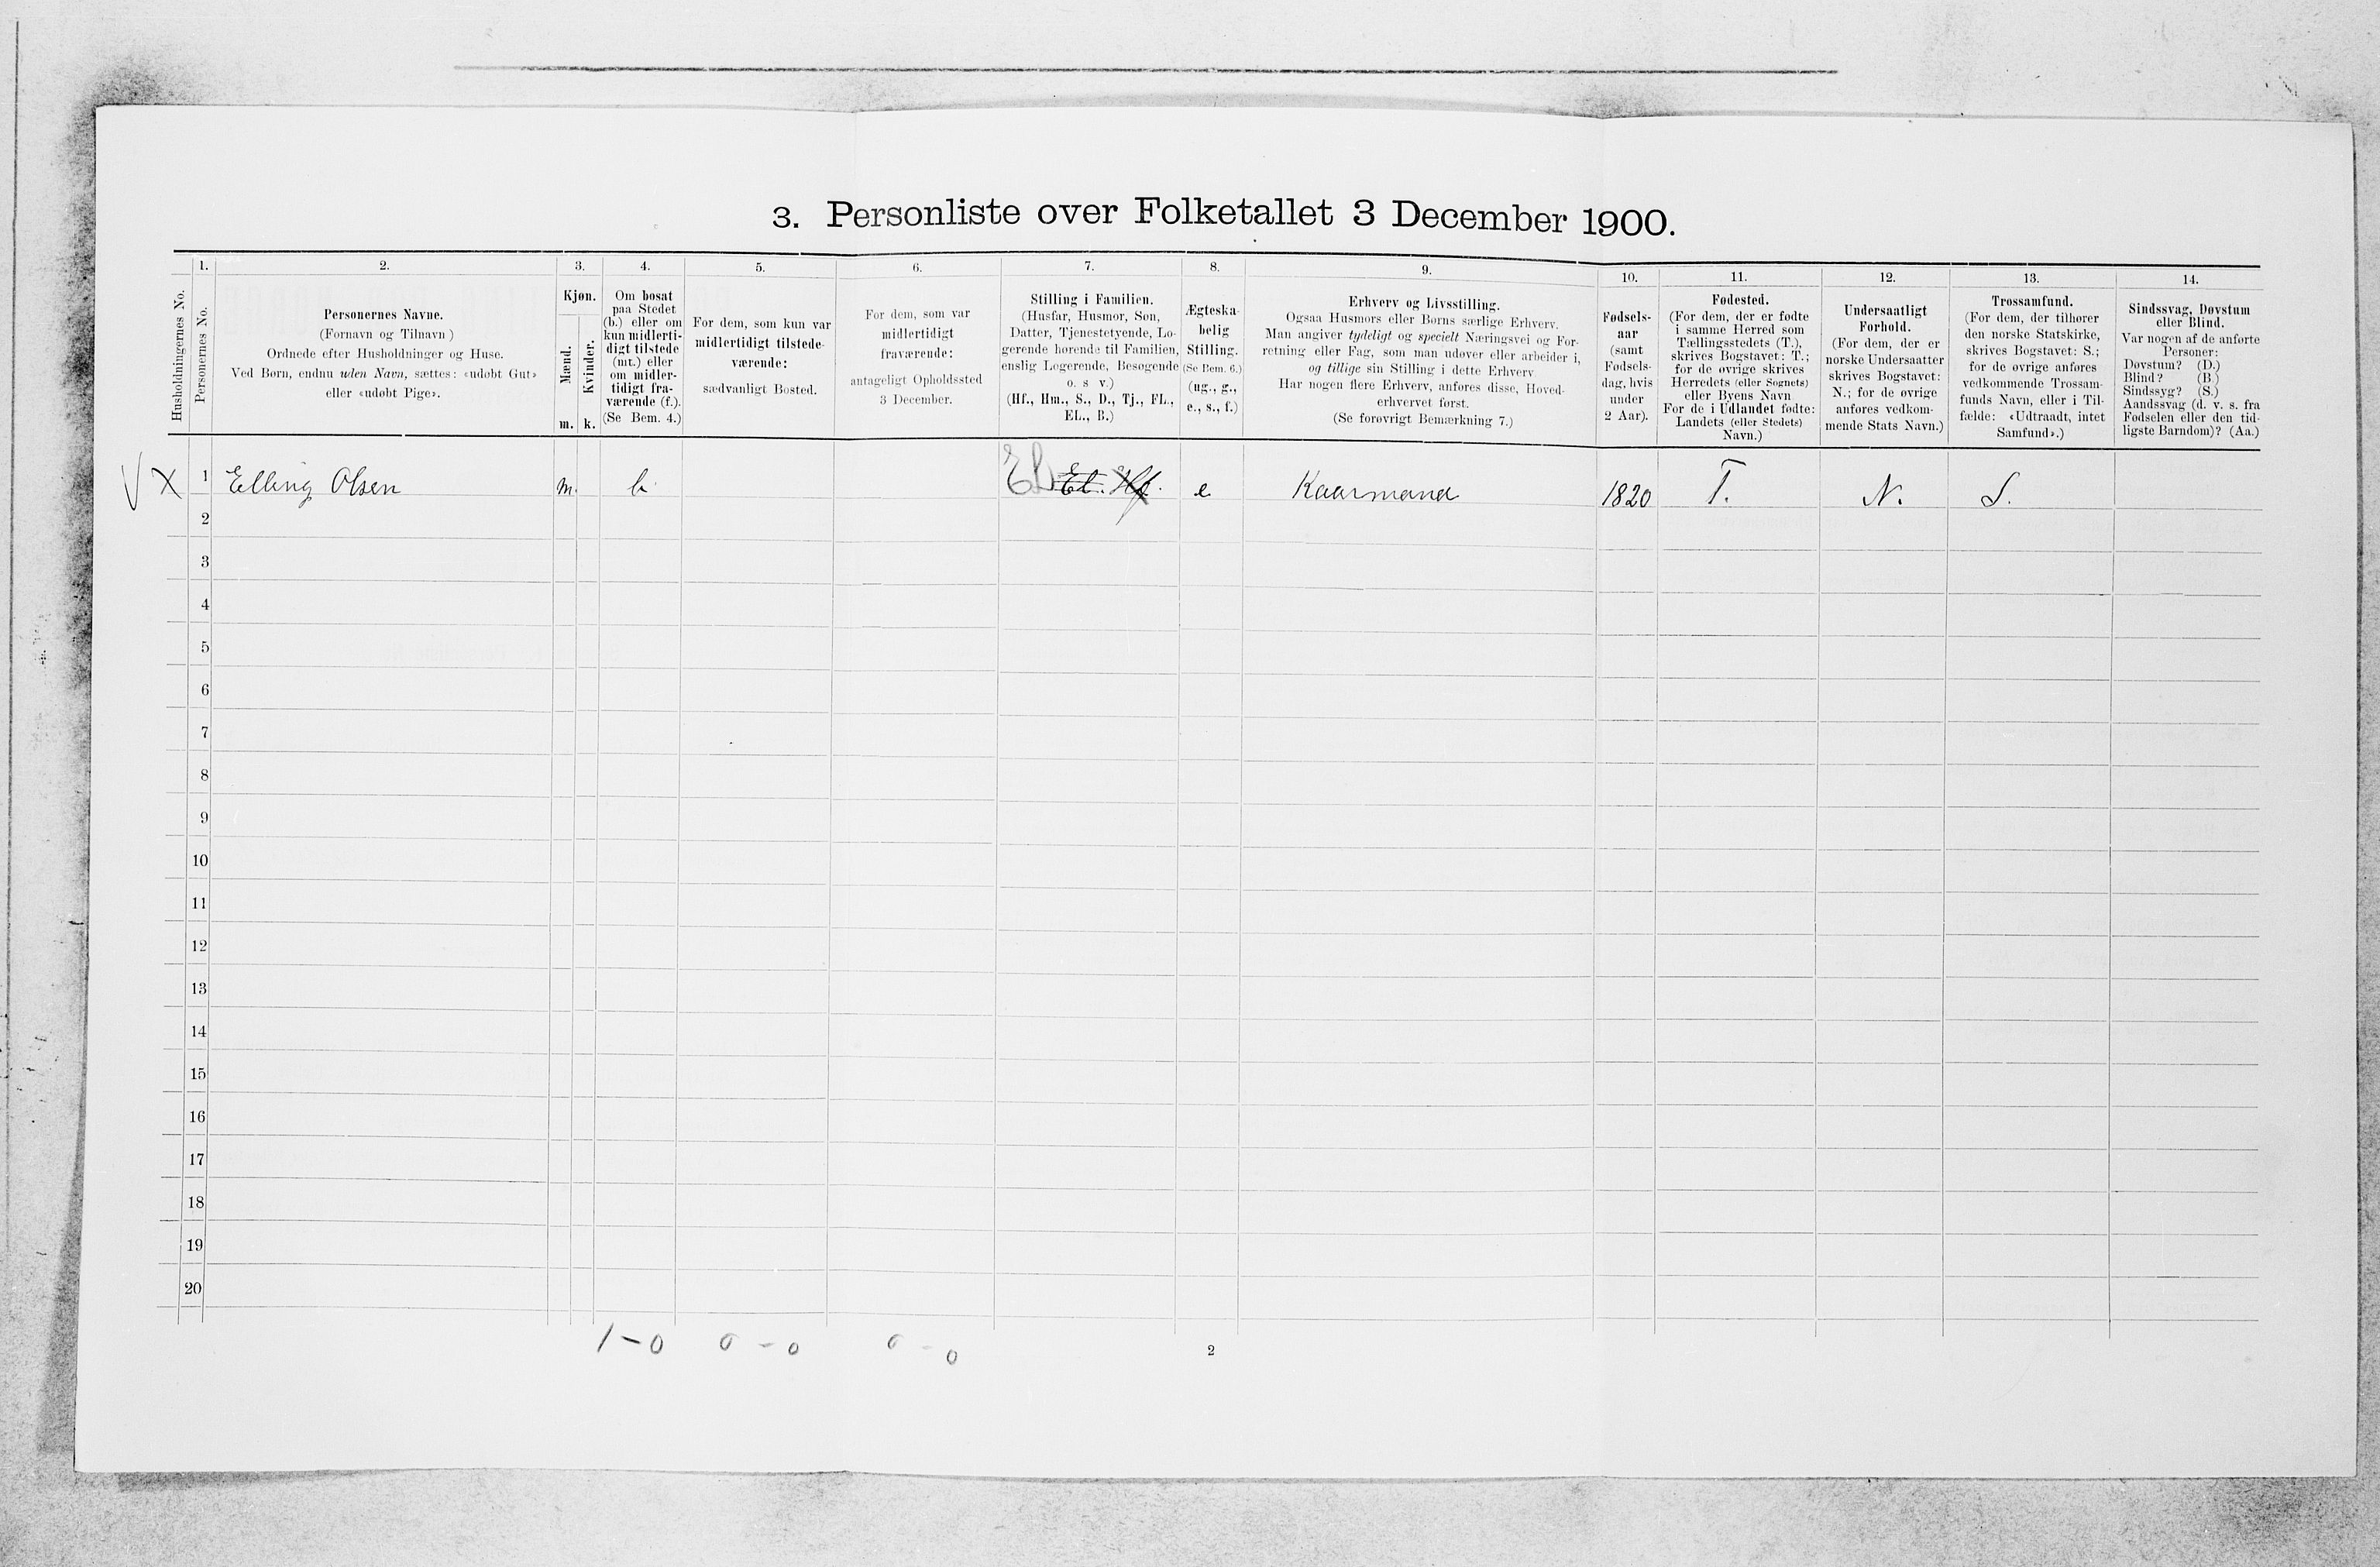 3. Personliste over Folketallet 3 December 1900.
Husholdningernes No.
1.
Personernes No.
2.
Personernes Navne.
(Fornavn og Tilnavn)
Ordnede efter Husholdninger og Huse.
Ved Børn, endnu uden Navn, sættes: «udøbt Gut»
eller «udøbt Pige».
3.
Kjøn.
Mænd.
Kvinder.
m. k.
4.
Om bosat
paa Stedet
(b.) eller om
kun midlerti-
digt tilstede
(mt.) eller
om midler-
tidigt fra-
værende (f.).
(Se Bem. 4.)
5.
For dem, som kun var
midlertidigt tilstede-
værende:
sædvanligt Bosted.
6.
For dem, som var
midlertidigt
fraværende:
antageligt Opholdssted
3 December.
7.
Stilling i Familien.
(Husfar, Husmor, Søn,
Datter, Tjenestetyende, Lo-
gerende hørende til Familien,
enslig Logerende, Besøgende
o. s v.)
(Hf., Hm., S., D., Tj., FL.,
EL., B.)
8.
Ægteska-
belig
Stilling.
(Se Bem. 6.)
(ug., g.,
e., s., f.)
9.
Erhverv og Livsstilling.
Ogsaa Husmors eller Børns særlige Erhverv.
Man angiver tydeligt og specielt Næringsvei og For-
retning eller Fag, som man udøver eller arbeider i,
og tillige sin Stilling i dette Erhverv.
Har nogen flere Erhverv, anføres disse, Hoved-
erhvervet først.
(Se forøvrigt Bemærkning 7.)
10.
Fødsels-
aar
(samt
Fødsels-
dag, hvis
under
2 Aar).
11.
Fødested.
(For dem, der er fødte
i samme Herred som
Tællingsstedets (T.),
skrives Bogstavet: T.;
for de øvrige skrives
Herredets (eller Sognets)
eller Byens Navn.
For de i Udlandet fødte:
Landets (eller Stedets)
Navn.)
12.
Undersaatligt
Forhold.
(For dem, der er
norske Undersaatter
skrives Bogstavet:
N.; for de øvrige
anføres vedkom-
mende Stats Navn.)
13.
Trossamfund.
(For dem, der tilhører
den norske Statskirke,
skrives Bogstavet: S.;
for de øvrige anføres
vedkommende Trossam-
funds Navn, eller i Til-
fælde: «Udtraadt, intet
Samfund».)
14.
Sindssvag, Døvstum
eller Blind.
Var nogen af de anførte
Personer:
Døvstum? (D.)
Blind? (B.)
Sindssyg? (S.)
Aandssvag (d. v. s. fra
Fødselen eller den tid-
ligste Barndom)? (Aa.)
X 1 Elling Olsen m. b EL El. Hf. e Kaarmand 1820 T. N. S.
2
3
4
5
6
7
8
9
10
11
12
13
14
15
16
17
18
19
20
1 - 0 0 - 0 0 - 0
2